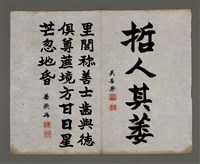 哲人其萎
里閭称善士齒與德
俱尊蓝境方甘日星
芒忽地昏